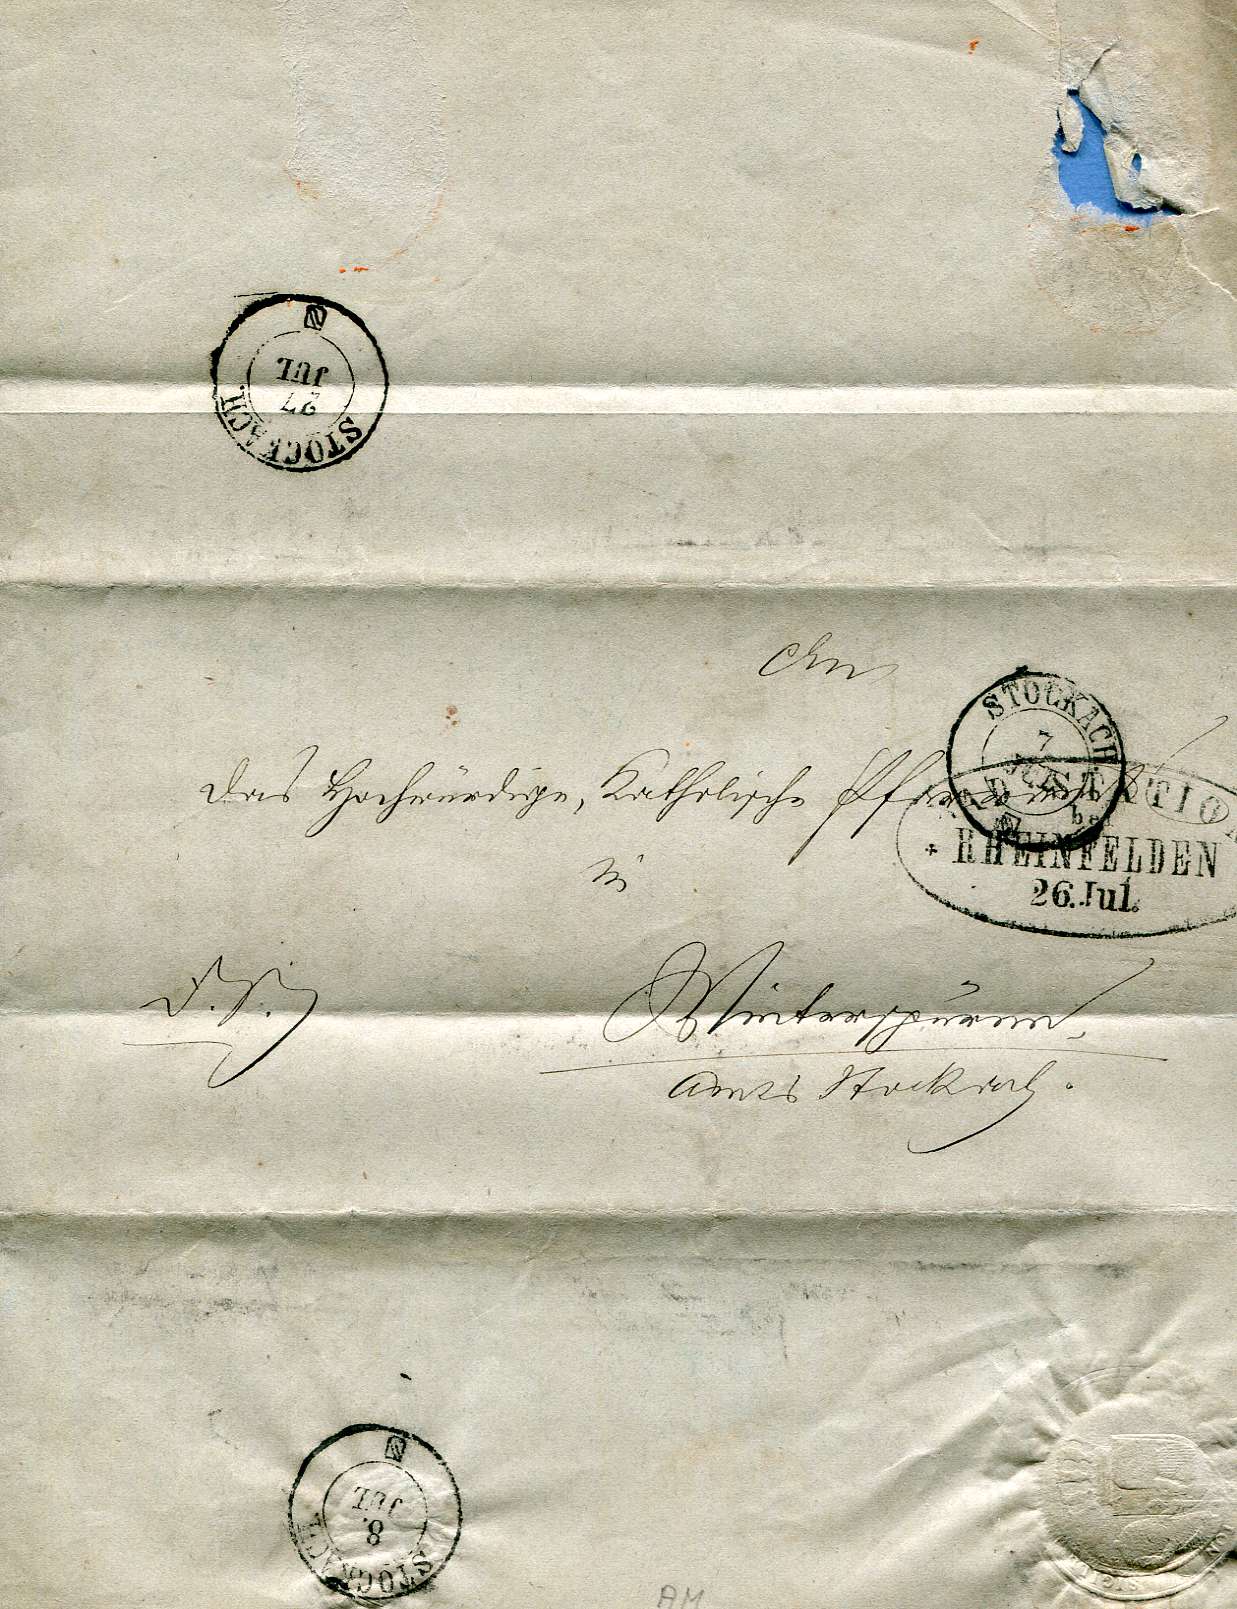 STOCKACH
27
JUL
An
STOCKACH
7
das Hochwürdige, Katholische Pfarramt
POSTSTATION
bei
RHEINFELDEN
26. Jul.
in
D. S.
Winterspüren,
Amts Stockach.
STOCKACH
8.
JUL
AM